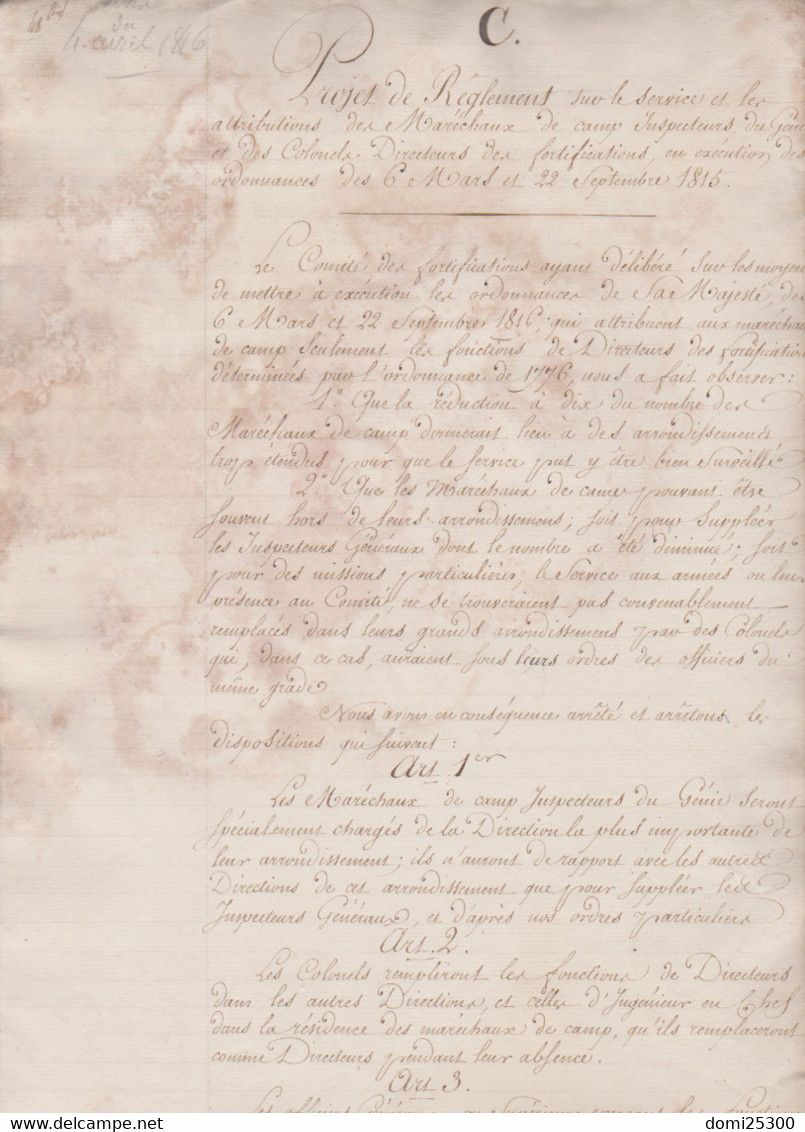 du
4 avril 1816
C.
Projet de Règlement sur le service et les
attributions des Maréchaux de camp Inspecteurs du Génie
et des Colonels Directeurs des fortifications, en exécution des
ordonnances des 6 Mars et 22 Septembre 1815.
Le Comité des fortifications ayant délibéré sur les moyens
de mettre à exécution les ordonnances de Sa Majesté, des
6 Mars et 22 Septembre 1816, qui attribuent aux maréchaux
de camp seulement les fonctions de Directeurs des fortifications
déterminées par l'ordonnance de 1776, nous a fait observer :
1.° Que la réduction à dix du nombre des
Maréchaux de camp donnerait lieu à des arrondissements
trop étendus pour que le service put y être bien surveillé
2.° Que les Maréchaux de camp pouvant être
souvent hors de leurs arrondissemens ; soit pour suppléer
les Inspecteurs Généraux dont le nombre a été diminué ; soit
pour des missions particulières, le service aux armées ou leur
présence au Comité, ne se trouveraient pas convenablement
remplacés dans leurs grands arrondissemens par des Colonels
qui, dans ce cas, auraient sous leurs ordres des officiers du
même grade
Nous avons en conséquence arrêté et arrêtons les
dispositions qui suivent :
Art 1er
Les Maréchaux de camp Inspecteurs du Génie seront
spécialement chargés de la Direction la plus importante de
leur arrondissement ; ils n'auront de rapport avec les autres
Directions de cet arrondissement que pour suppléer les
Inspecteurs Généraux, et d'après nos ordres particuliers
Art. 2.
Les Colonels rempliront les fonctions de Directeurs
dans les autres Directions, et celles d'Ingénieur en Chef
dans la résidence des maréchaux de camp, qu'ils remplaceront
comme Directeurs pendant leur absence.
Art 3.
Les officiers Généraux ou Supérieurs les fonctions
delcampe.net
domi25300